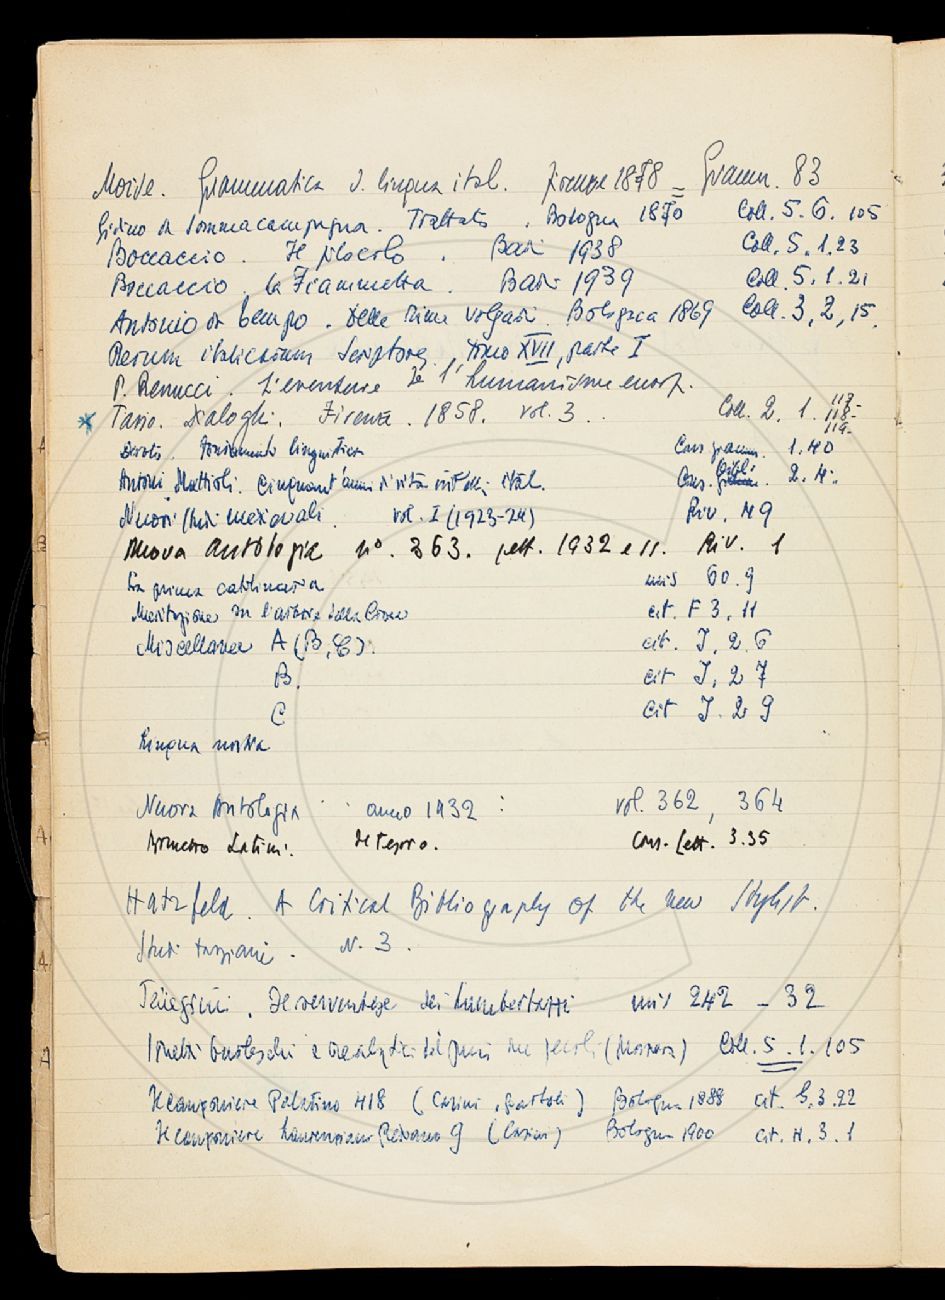 Moise. Grammatica d. lingua ital. Firenze 1878 = Gramm. 83
Gidino da Sommacampagna. Trattato. Bologna 1870 Coll. 5. 6. 105
Boccaccio. Il filocolo. Bari 1938 Coll. 5. 1. 23
Boccaccio. La Fiammetta. Bari 1939 Coll. 5. 1. 21
Antonio da Tempo. Delle Rime volgari. Bologna 1869 Coll. 3, 2, 15.
Rerum italicarum Scriptores, tomo XVII, parte I
P. Renucci. L'aventure de l'humanisme europ.
Tasso. Dialoghi. Firenze. 1858. vol. 3. Coll. 2. 1. 117- 118- 119-
Devoto. Fondamenti linguistica Cons. gramm. 1. 40
Antoni Mattioli. Cinquant'anni di vita intell. ital. Cons. bibl. 2. 4.
Nuovi Studi medievali. vol. I (1923-24) Riv. 49
Nuova Antologia nº. 363. sett. 1932 e 11. Riv. 1
La prima catilinaria mis 60. 9
Meditazione su l'albero della Croce cit. F 3. 11
Miscellanea A (B, C). cit. I. 2. 6
B. cit I. 2 7
C cit I. 2 9
Lingua nostra
Nuova Antologia anno 1932 : vol. 362, 364
Brunetto Latini. Il Tesoro. Cons. lett. 3. 35
Hatzfeld. A Critical Bibliography of the new Stylist.
Studi tassiani. N. 3.
Il serventese dei Lambertazzi mis 242 - 32
(Morpurgo) Coll. 5. 1. 105
Il canzoniere Palatino 418 (Casini, Bartoli) Bologna 1888 cit. G. 3. 22
Il canzoniere Laurenziano Rediano 9 (Casini) Bologna 1900 cit. H. 3. 1